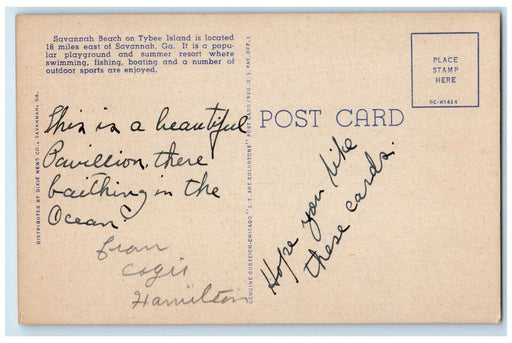 Savannah Beach on Tybee Island is located
18 miles east of Savannah, Ga. It is a popu-
lar playground and summer resort where
swimming, fishing, boating and a number of
outdoor sports are enjoyed.
This is a beautiful
Pavillion, there
baithing in the
Ocean.
from
Hamilton
DISTRIBUTED BY DIXIE NEWS CO., SAVANNAH, GA.
GENUINE CURTEICH-CHICAGO "C.T. ART-COLORTONE" POST CARD (REG. U.S. PAT. OFF.)
POST CARD
PLACE
STAMP
HERE
Hope you like
these cards.